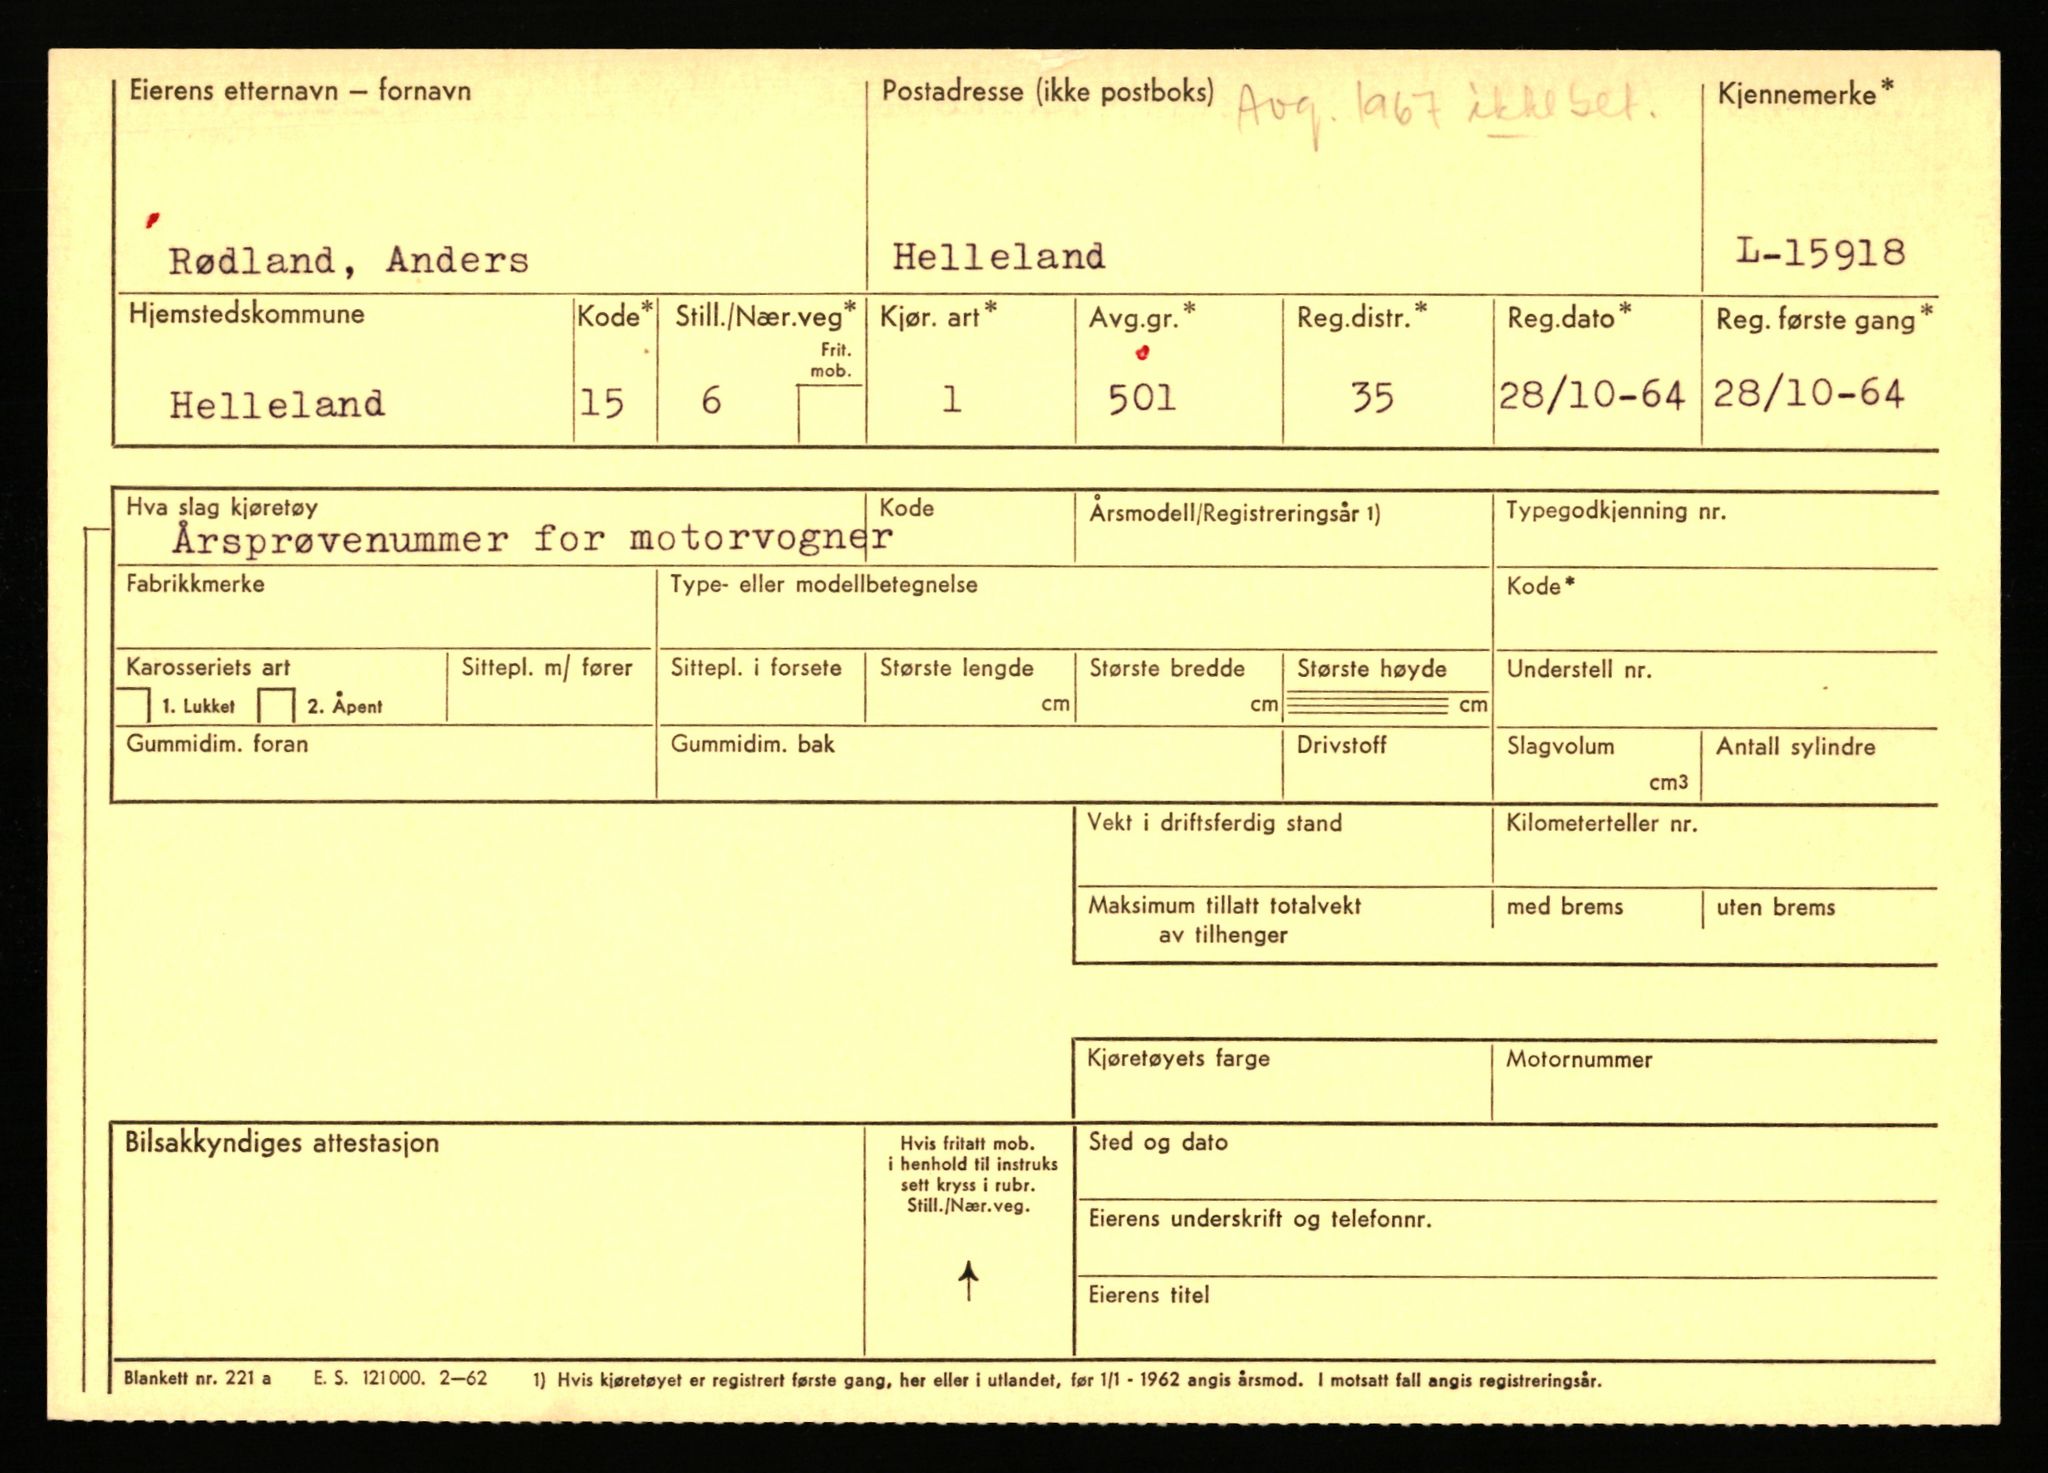 Eierens etternavn – fornavn
Postadresse (ikke postboks) Avg. 1967 ikke bet.
Kjennemerke*
Rødland, Anders
Helleland
L-15918
Hjemstedskommune
Kode*
Still./Nær.veg*
Kjør. art*
Avg.gr.*
Reg.distr.*
Reg.dato*
Reg. første gang*
Frit.
mob.
Helleland
15
6
1
501
35
28/10-64
28/10-64
Hva slag kjøretøy
Kode
Årsmodell/Registreringsår 1)
Typegodkjenning nr.
Årsprøvenummer for motorvogner
Fabrikkmerke
Type- eller modellbetegnelse
Kode*
Karosseriets art
Sittepl. m/ fører
Sittepl. i forsete
Største lengde
Største bredde
Største høyde
Understell nr.
1. Lukket
2. Åpent
cm
cm
cm
Gummidim. foran
Gummidim. bak
Drivstoff
Slagvolum
Antall sylindre
cm3
Vekt i driftsferdig stand
Kilometerteller nr.
Maksimum tillatt totalvekt
av tilhenger
med brems
uten brems
Kjøretøyets farge
Motornummer
Bilsakkyndiges attestasjon
Hvis fritatt mob.
i henhold til instruks
sett kryss i rubr.
Still./Nær.veg.
Sted og dato
Eierens underskrift og telefonnr.
Eierens titel
Blankett nr. 221 a E. S. 121000. 2–62 1) Hvis kjøretøyet er registrert første gang, her eller i utlandet, før 1/1 - 1962 angis årsmod. I motsatt fall angis registreringsår.